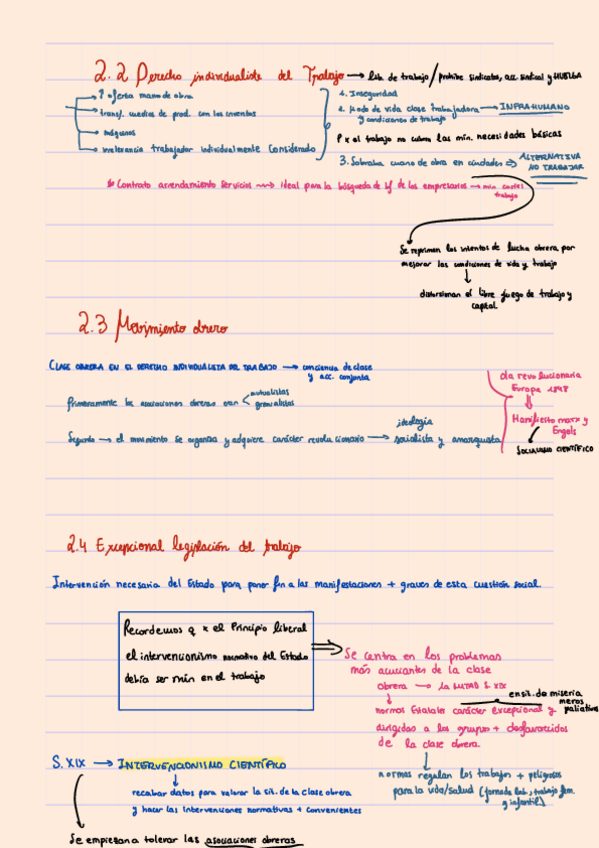 2.2 Derecho individualista del Trabajo → lib. de trabajo/prohibe sindicatos, acc. sindical y HUELGA
↑ oferta mano de obra
transf. medios de prod. con los inventos
máquinas
irrelevancia trabajador individualmente considerado
1. Inseguridad
2. modo de vida clase trabajadora → INFRAHUMANO
y condiciones de trabajo
P x el trabajo no cubren las mín. necesidades básicas
3. Sobraba mano de obra en ciudades ⇒ ALTERNATIVA
NO TRABAJAR
Contrato arrendamiento servicios → ideal para la búsqueda de bf de los empresarios → mín costes
trabajo
Se reprimen los intentos de lucha obrera por
mejorar las condiciones de vida y trabajo
↓
distorsionan el libre juego de trabajo y
capital
2.3 Movimiento obrero
CLASE OBRERA EN EL DERECHO INDIVIDUALISTA DEL TRABAJO → conciencia de clase
y acc. conjunta
Primeramente las asociaciones obreras eran < mutualistas
gremialistas
Segundo → el movimiento se organiza y adquiere carácter revolucionario → socialista y anarquista
ideología
ola revolucionaria
Europa 1848
⇓
Manifiesto marx y
Engels
SOCIALISMO CIENTÍFICO
2.4 Excepcional legislación del trabajo
Intervención necesaria del Estado para poner fin a las manifestaciones + graves de esta cuestión social.
Recordemos q x el Principio liberal
el intervencionismo normativo del Estado
debía ser mín en el trabajo
Se centra en los problemas
más acuciantes de la clase
obrera → S. XIX
↓
normas Estatales carácter excepcional y meros paliativos
dirigidas a los grupos + desfavorecidos
de la clase obrera.
↓
normas regulan los trabajos + peligrosos
para la vida/salud (jornada lab., trabajo fem.
e infantil)
S. XIX → INTERVENCIONISMO CIENTÍFICO
↓
recabar datos para valorar la sit. de la clase obrera
y hacer las intervenciones normativas + convenientes
Se empiezan a tolerar las asociaciones obreras